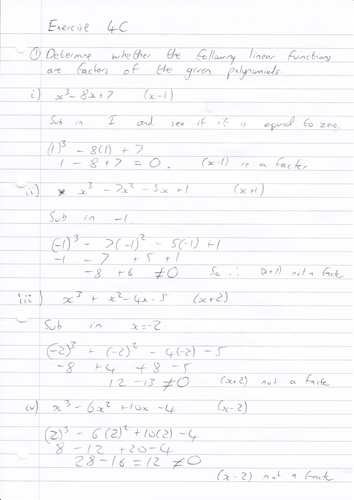 Exercise 4C
① Determine whether the following linear functions
are factors of the given polynomials.
i) x³-8x+7 (x-1)
Sub in 1 and see if it is equal to zero.
(1)³ - 8(1) + 7
1 - 8 + 7 = 0. (x-1) is a factor
ii) x³ - 7x² - 5x + 1 (x+1)
Sub in -1
(-1)³ - 7(-1)² - 5(-1) + 1
-1 - 7 + 5 + 1
-8 + 6 ≠0 So ∴ (x+1) not a factor
iii) x³ + x² - 4x - 5 (x+2)
Sub in x=-2
(-2)³ + (-2)² - 4(-2) - 5
-8 + 4 + 8 - 5
12 - 13 ≠ 0 (x+2) not a factor
iv) x³ - 6x² + 10x - 4 (x-2)
(2)³ - 6(2)² + 10(2) - 4
8 - 12 + 20 - 4
28 - 16 = 12 ≠0
(x-2) not a factor